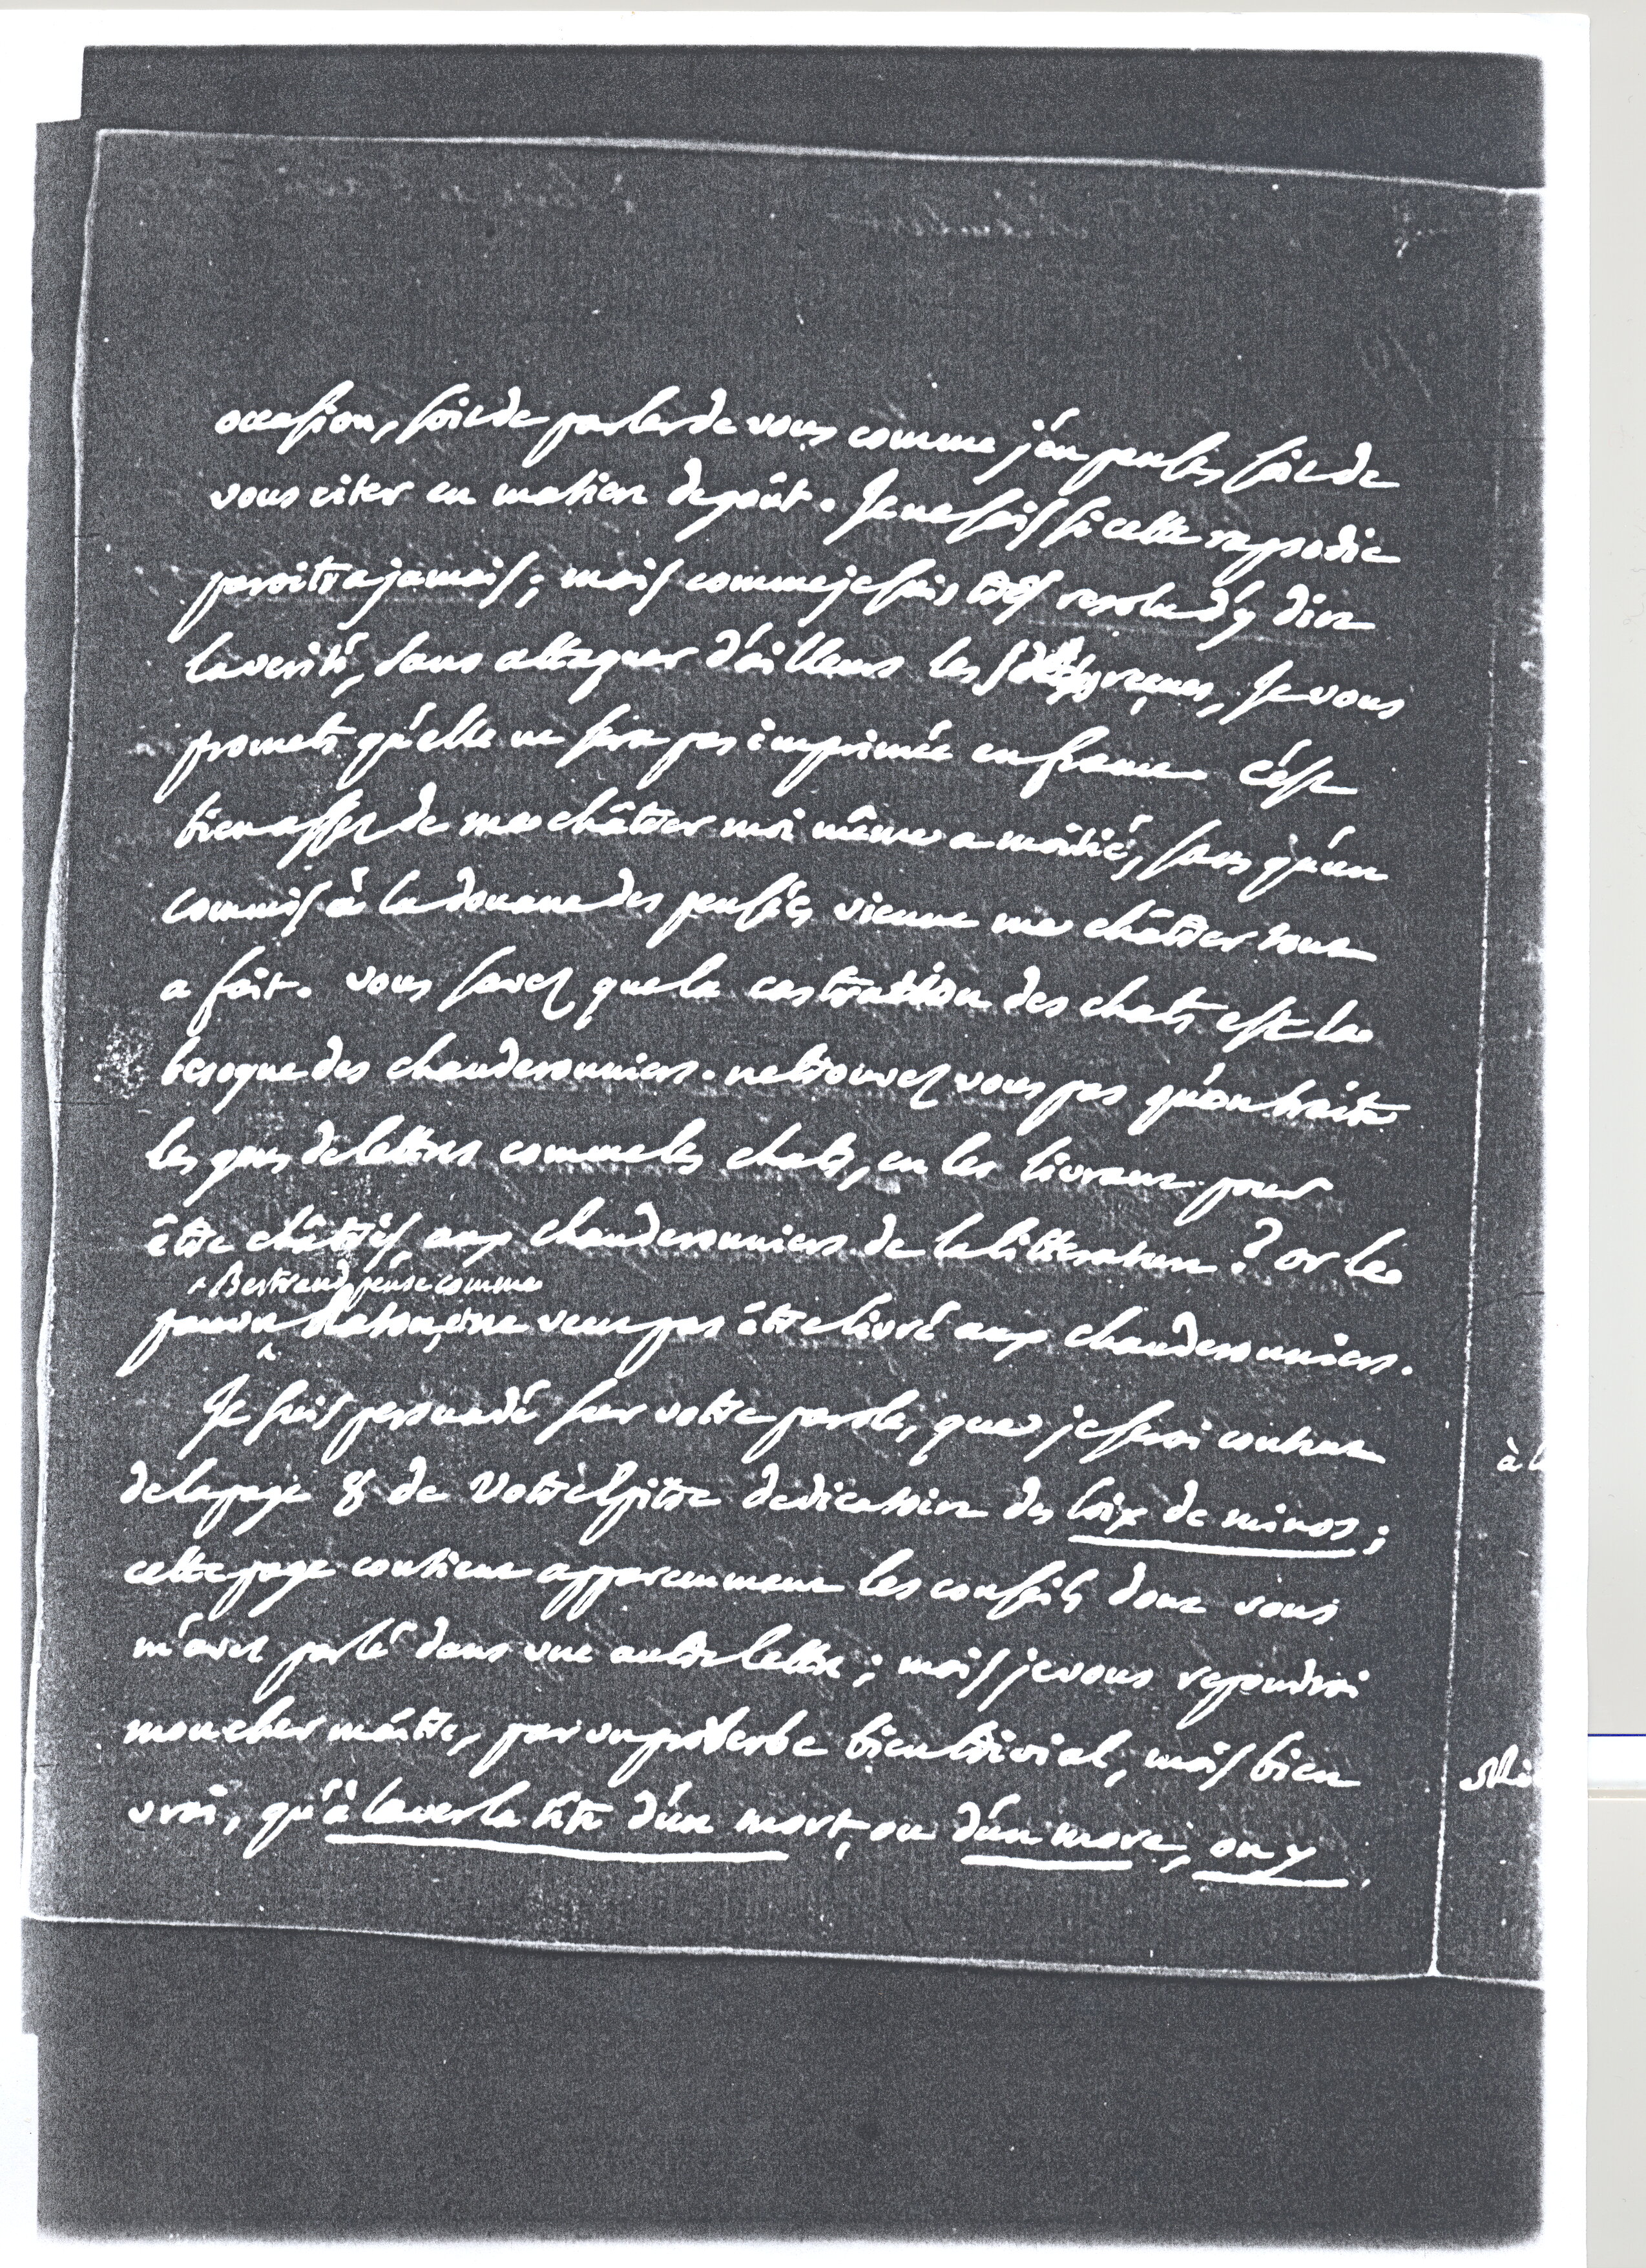 occasion, soit de parler de vous comme j'en pense, soit de
vous citer en matiere de goût. Je ne sais si cette rapsodie
paroitra jamais; mais comme je suis très resolu d'y dire
la verité, sans attaquer d'ailleurs les reçues, Je vous
promets qu'elle ne sera pas imprimée en france c'est
bien assez de me châtrer moi même a moitié, sans qu'un
commis à la douane des pensées vienne me châtrer tout
a fait. vous savez que la castration des chats est la
besogne des chauderonniers. ne trouvez vous pas qu'on traite
les gens de lettres comme les chats, en les livrant pour
être châtrés, aux chauderonniers de la litterature? or le
+ Bertrand pense comme
pauvre Raton, & ne veut pas être livré aux chauderonniers.
Je suis persuadé sur votre parole, que je serai content
de la page 8 de votre epitre dedicatoire des loix de minos;
cette page contient apparemment les conseils dont vous
m'avez parlé dans une autre lettre; mais je vous repondrai
mon cher maitre, par un proverbe bien trivial, mais bien
vrai, qu'à laver la tête d'un mort, ou d'un more, on y
à l